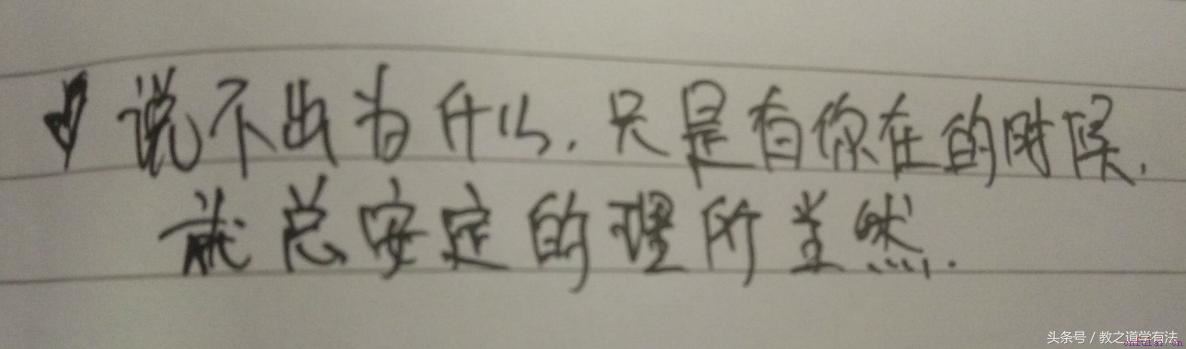 说不出为什么.只是有你在的时候.
就总安定的理所当然.
头条号 / 教之道学有法